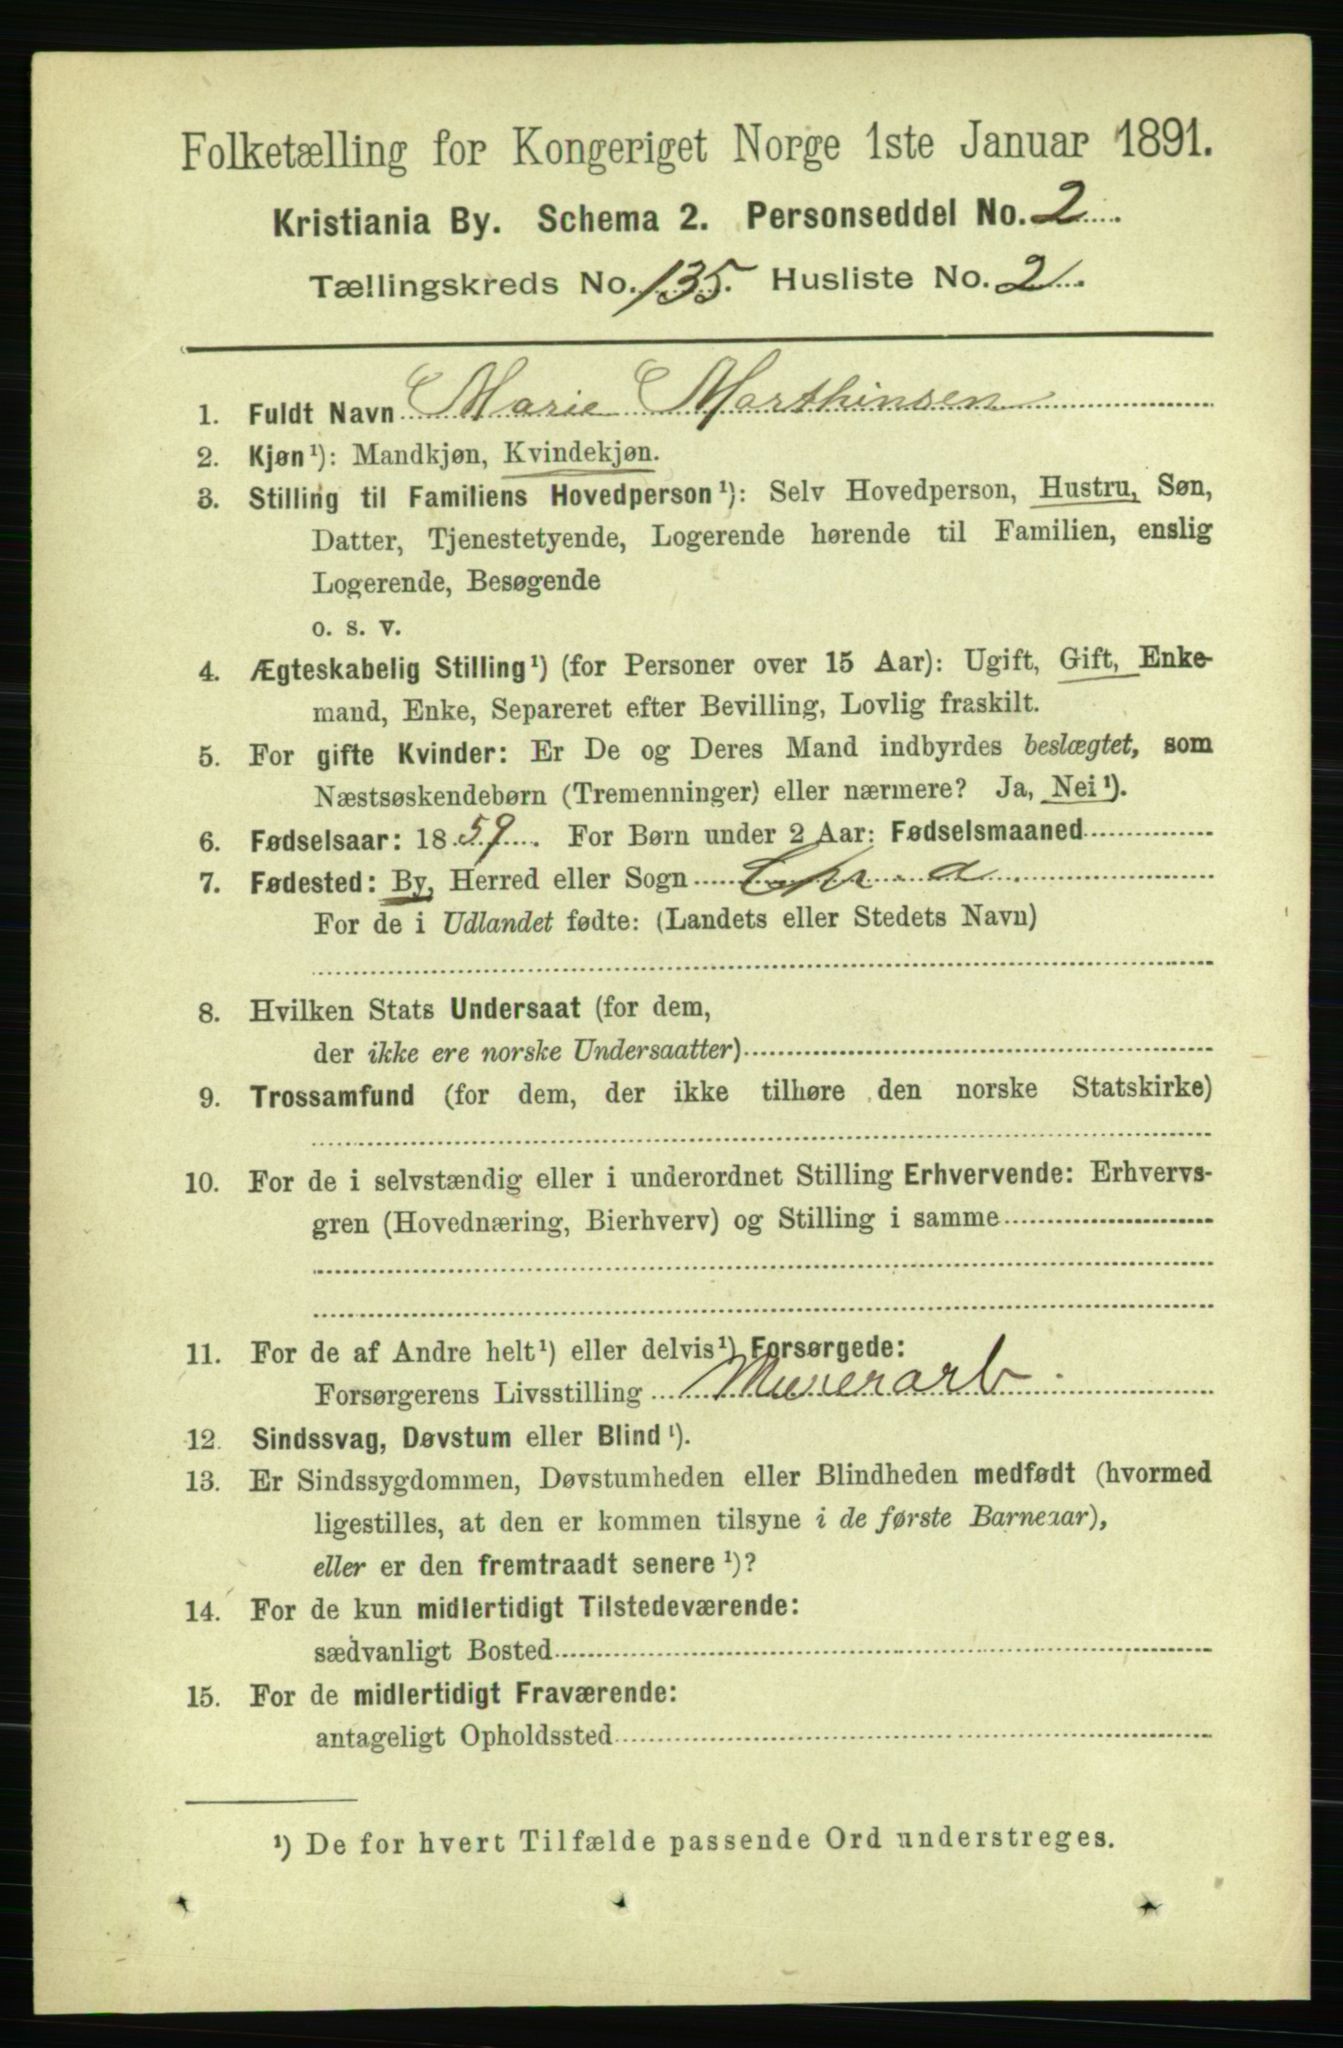 Folketælling for Kongeriget Norge 1ste Januar 1891.
Kristiania By. Schema 2. Personseddel No. 2
Tællingskreds No. 135. Husliste No. 2
1. Fuldt Navn Marie Marthinsen
2. Kjøn¹): Mandkjøn, Kvindekjøn.
3. Stilling til Familiens Hovedperson¹): Selv Hovedperson, Hustru, Søn,
Datter, Tjenestetyende, Logerende hørende til Familien, enslig
Logerende, Besøgende
o. s. v.
4. Ægteskabelig Stilling¹) (for Personer over 15 Aar): Ugift, Gift, Enke-
mand, Enke, Separeret efter Bevilling, Lovlig fraskilt.
5. For gifte Kvinder: Er De og Deres Mand indbyrdes beslægtet, som
Næstsøskendebørn (Tremenninger) eller nærmere? Ja, Nei¹).
6. Fødselsaar: 1859. For Børn under 2 Aar: Fødselsmaaned
7. Fødested: By, Herred eller Sogn Chr.a
For de i Udlandet fødte: (Landets eller Stedets Navn)
8. Hvilken Stats Undersaat (for dem,
der ikke ere norske Undersaatter)
9. Trossamfund (for dem, der ikke tilhøre den norske Statskirke)
10. For de i selvstændig eller i underordnet Stilling Erhvervende: Erhvervs-
gren (Hovednæring, Bierhverv) og Stilling i samme
11. For de af Andre helt¹) eller delvis¹) Forsørgede:
Forsørgerens Livsstilling Murerarb.
12. Sindssvag, Døvstum eller Blind¹).
13. Er Sindssygdommen, Døvstumheden eller Blindheden medfødt (hvormed
ligestilles, at den er kommen tilsyne i de første Barneaar),
eller er den fremtraadt senere¹)?
14. For de kun midlertidigt Tilstedeværende:
sædvanligt Bosted
15. For de midlertidigt Fraværende:
antageligt Opholdssted
¹) De for hvert Tilfælde passende Ord understreges.